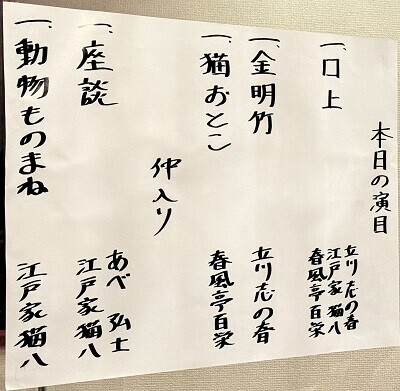 本日の演目
一、口上
立川志の春
江戸家猫八
春風亭百栄
一、金明竹
立川志の春
一、猫おとこ
春風亭百栄
仲入り
一、座談
あべ弘士
江戸家猫八
一、動物ものまね
江戸家猫八